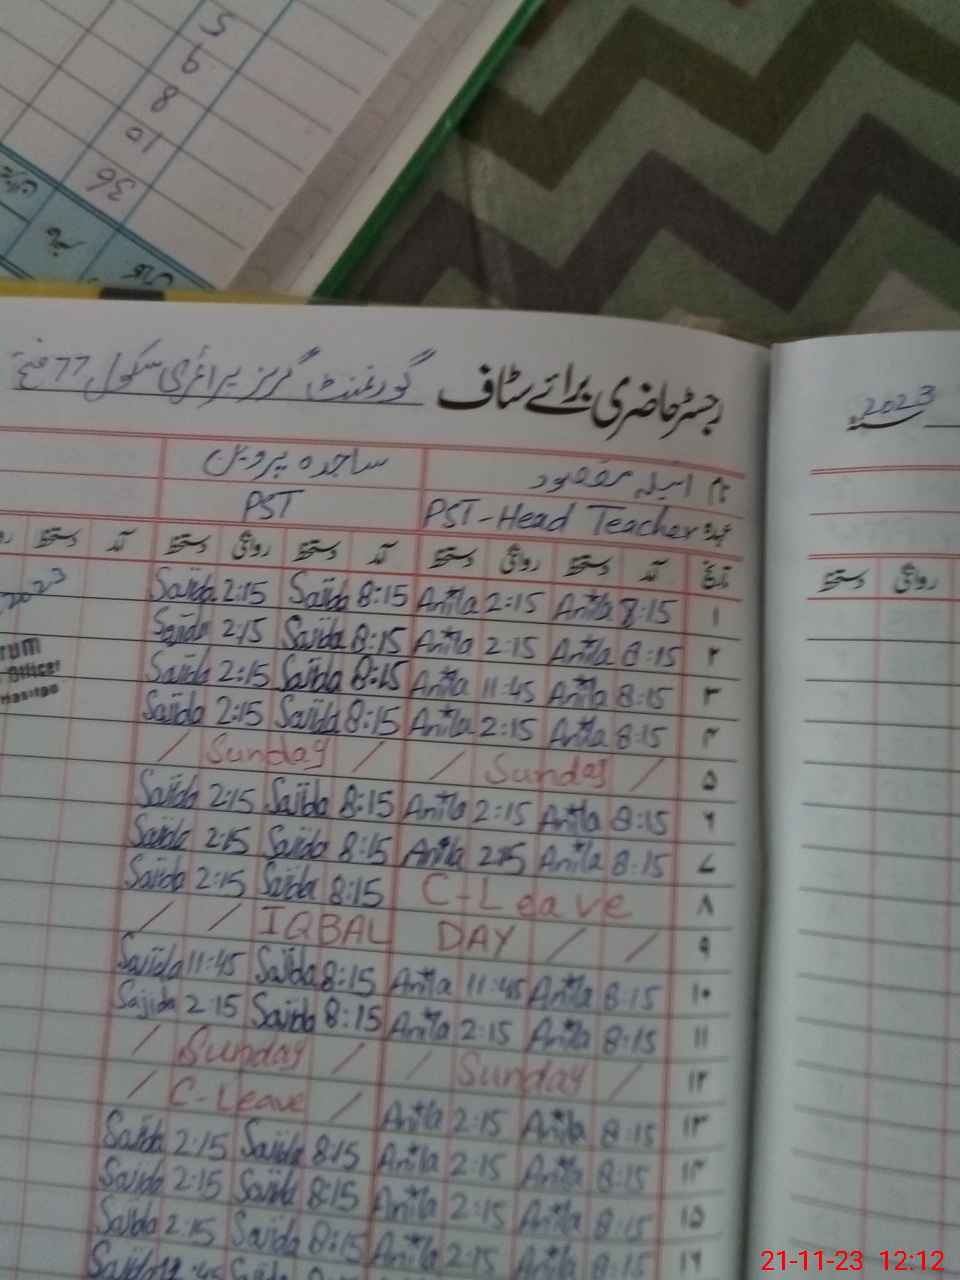 5
9
8
10
36
نام
رجسٹر حاضری برائے سٹاف گورنمنٹ گرلز پرائمری سکول 77
2023
نام انیلہ مقصود ساجدہ پروین
عہدہ PST-Head Teacher PST
تاریخ آمد دستخط روانگی دستخط آمد دستخط روانگی دستخط آمد دستخط
روانگی دستخط
۱ 8:15 Anila 2:15 Anila 8:15 Sajida 2:15 Sajida
2023
۲ 8:15 Anila 2:15 Anila 8:15 Sajida 2:15 Sajida
۳ 8:15 Anila 11:45 Anila 8:15 Sajida 2:15 Sajida
۴ 8:15 Anila 2:15 Anila 8:15 Sajida 2:15 Sajida
۵ / Sunday / / Sunday /
۶ 8:15 Anila 2:15 Anila 8:15 Sajida 2:15 Sajida
۷ 8:15 Anila 2:15 Anila 8:15 Sajida 2:15 Sajida
۸ C-Leave 8:15 Sajida 2:15 Sajida
۹ / / IQBAL DAY / /
۱۰ 8:15 Anila 11:45 Anila 8:15 Sajida 11:45 Sajida
۱۱ 8:15 Anila 2:15 Anila 8:15 Sajida 2:15 Sajida
۱۲ / Sunday / / Sunday /
۱۳ 8:15 Anila 2:15 Anila / C-Leave /
۱۴ 8:15 Anila 2:15 Anila 8:15 Sajida 2:15 Sajida
۱۵ 8:15 Anila 2:15 Anila 8:15 Sajida 2:15 Sajida
۱۶ 8:15 Anila 2:15 Anila 8:15 Sajida 2:15 Sajida
Officer
21-11-23 12:12